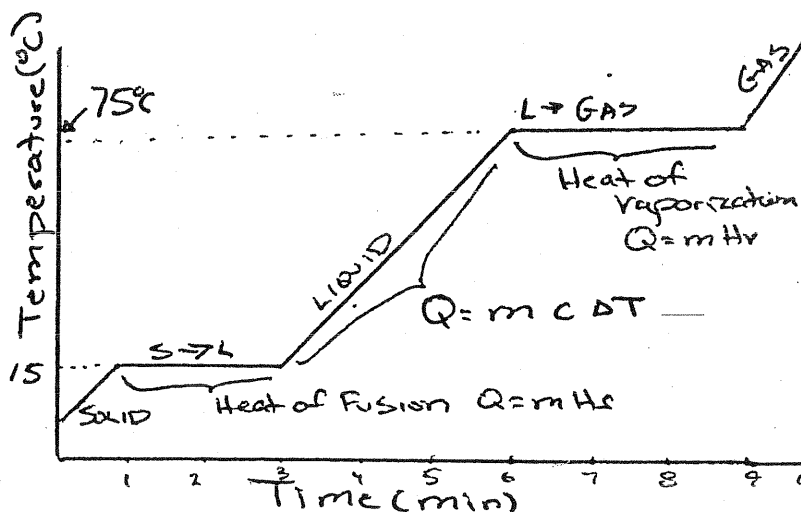 Temperature (°C)
75°C
15
SOLID
S→L
Heat of Fusion Q=mHf
LIQUID
Q= m C ΔT
L→ GAS
Heat of
vaporization
Q=mHv
GAS
1 2 3 4 5 6 7 8 9
Time (min)